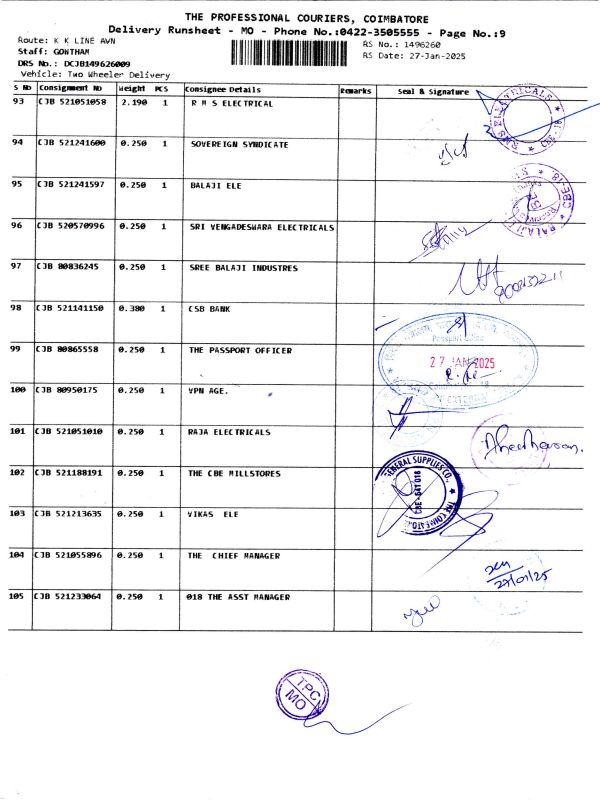 THE PROFESSIONAL COURIERS, COIMBATORE
Delivery Runsheet - MO - Phone No.:0422-3505555 - Page No.:9
Route: K K LINE AWN
RS No.: 1496260
Staff: GOWTHAM
RS Date: 27-Jan-2025
DRS No.: DCJB149626009
Vehicle: Two Wheeler Delivery
S No Consignment No Weight PCS Consignee Details Remarks Seal & Signature
93 CJB 521051058 2.190 1 R M S ELECTRICAL
94 CJB 521241600 0.250 1 SOVEREIGN SYNDICATE
95 CJB 521241597 0.250 1 BALAJI ELE
96 CJB 520570996 0.250 1 SRI VENGADESWARA ELECTRICALS
97 CJB 80836245 0.250 1 SREE BALAJI INDUSTRES
98 CJB 521141150 0.380 1 CSB BANK
99 CJB 80865558 0.250 1 THE PASSPORT OFFICER
27 JAN 2025
100 CJB 80950175 0.250 1 VPN AGE.
101 CJB 521051010 0.250 1 RAJA ELECTRICALS
102 CJB 521188191 0.250 1 THE CBE MILLSTORES
GENERAL SUPPLIES CO.,
103 CJB 521213635 0.250 1 VIKAS ELE
104 CJB 521055896 0.250 1 THE CHIEF MANAGER
27/01/25
105 CJB 521233064 0.250 1 018 THE ASST MANAGER
TPC
MO